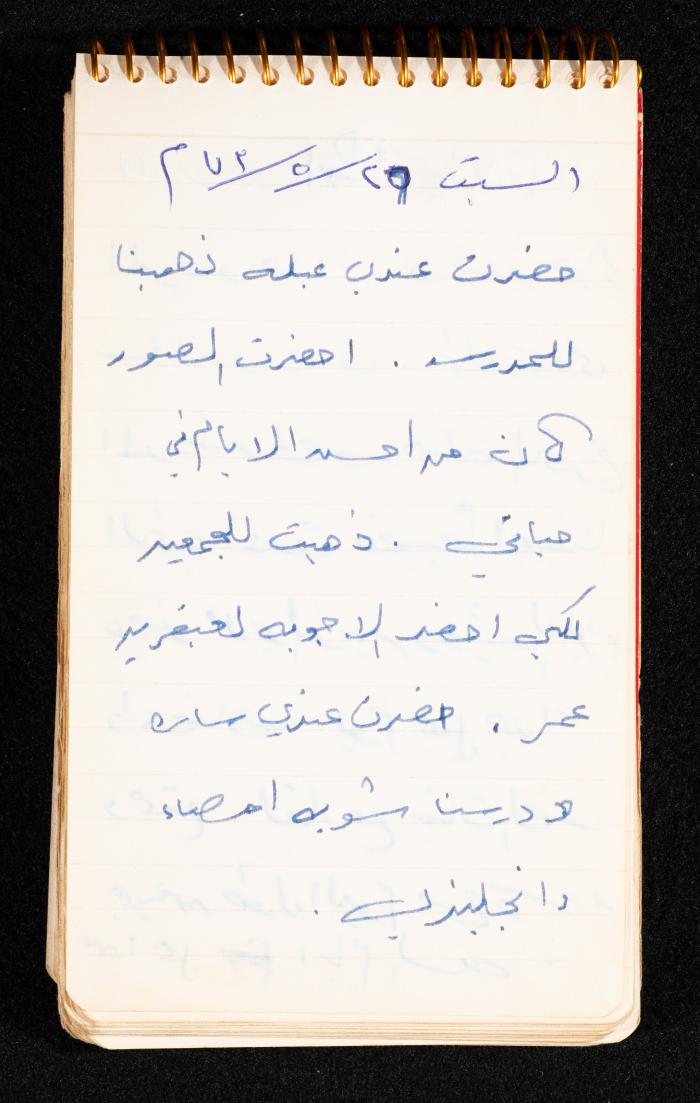 السبت ٢٩/٥/٧٦ م
حضرت عندي عبله ذهبنا
للمدرسه . احضرت الصور
كان من احسن الايام في
حياتي . ذهبت للجمعيه
لكي احضر الاجوبه لعبقريه
عمر . حضرت عندي ساره
ودرسنا شويه احصاء
وانجليزي .